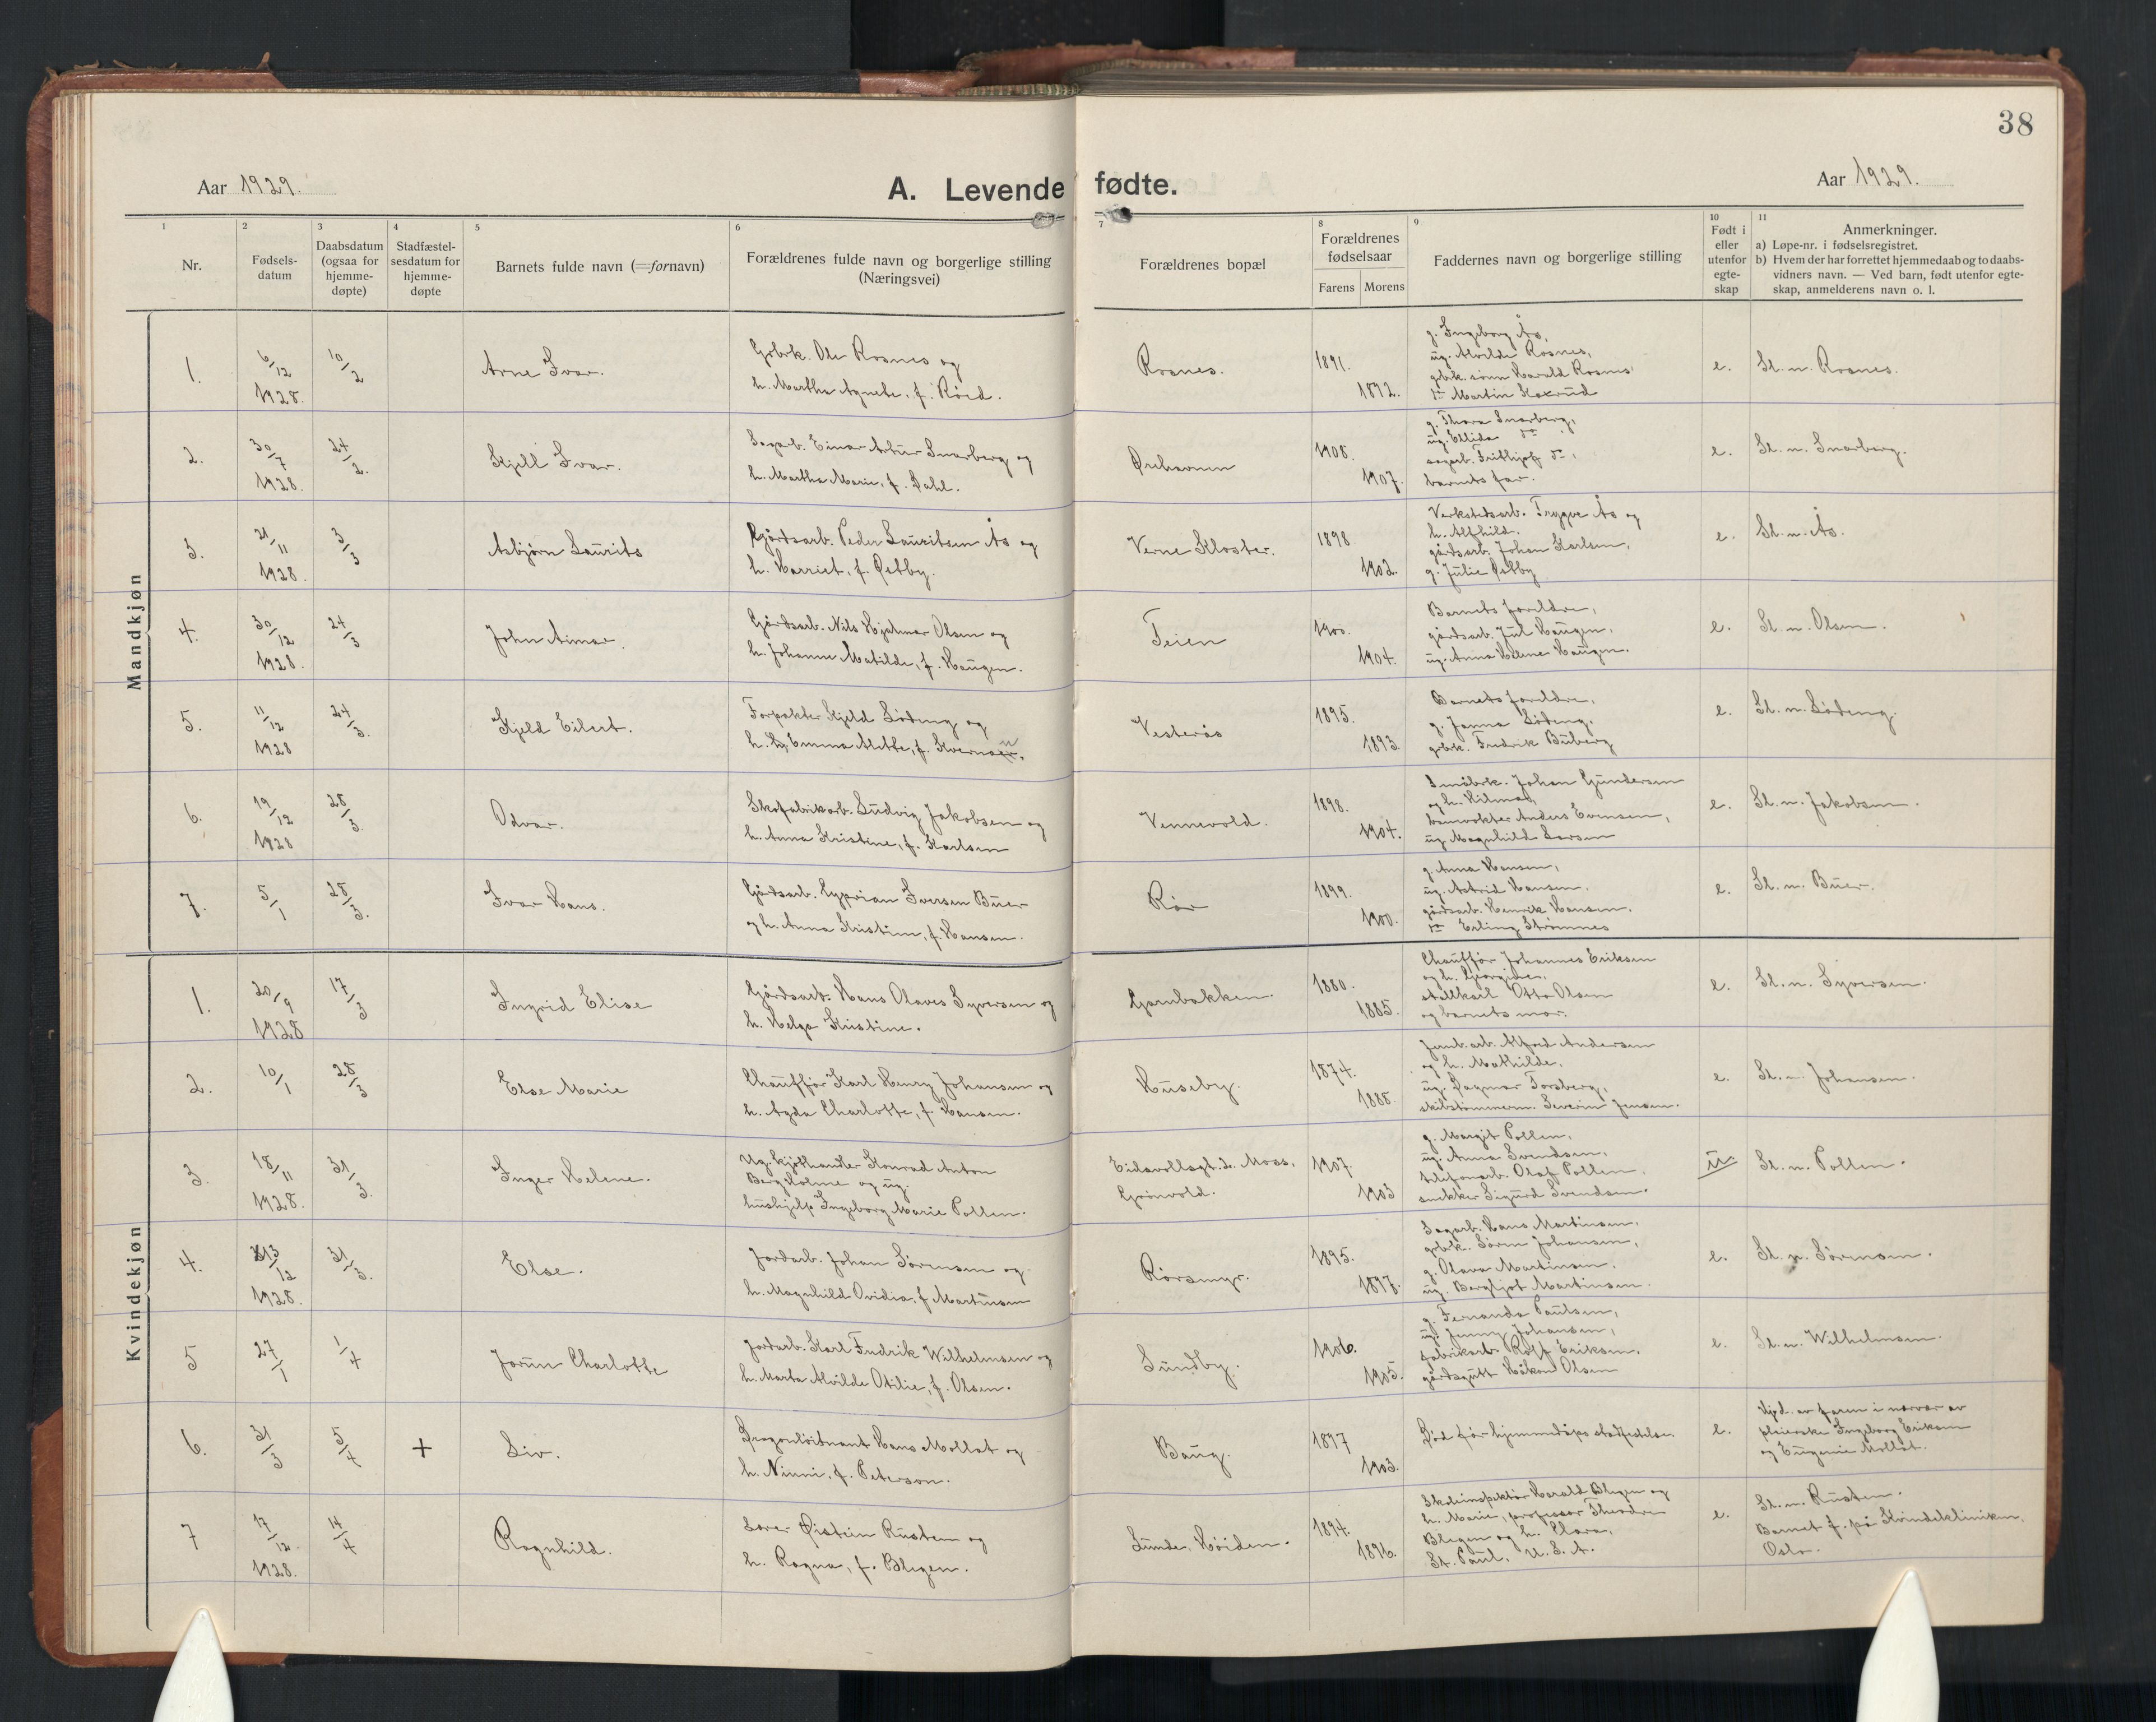 38
Aar 1929.
A. Levende fødte.
Aar 1929.
1
2
3
4
5
6
7
8
9
10
11
Nr.
Fødsels-
datum
Daabsdatum
(ogsaa for
hjemme-
døpte)
Stadfæstel-
sesdatum for
hjemme-
døpte
Barnets fulde navn (=fornavn)
Forældrenes fulde navn og borgerlige stilling
(Næringsvei)
Forældrenes bopæl
Forældrenes
fødselsaar
Farens
Morens
Faddernes navn og borgerlige stilling
Født i
eller
utenfor
egte-
skap
Anmerkninger.
a) Løpe-nr. i fødselsregistret.
b) Hvem der har forrettet hjemmedaab og to daabs-
vidners navn. — Ved barn, født utenfor egte-
skap, anmelderens navn o. l.
Mandkjøn
1.
6/12
1928.
10/2
Arne Ivar.
Gbrk. Ole Rosnes og
h. Martha Agnete, f. Röed.
Rosnes.
1891.
1892.
g. Ingeborg Ås,
ug. Alvilde Rosnes,
gbrk. sönn Harald Rosnes
Martin Kokrud
e.
Sl. n. Rosnes.
2.
30/7
1928.
24/2.
Kjell Ivar.
Sagarb. Einar Artur Snarberg og
h. Martha Marie, f. Dahl.
Örehavnen
1908.
1907.
g. Thora Snarberg,
ug. Ellida do
sagarb. Frithjof do,
barnets far.
e.
Sl. n. Snarberg.
3.
21/11
1928.
3/3
Asbjørn Laurits
Gårdsarb. Peder Lauritsen Ås og
h. Harriet, f. Østby.
Verne Kloster.
1898
1902.
Verkstedsarb. Trygve Ås og
h. Alfhild.
gårdsarb. Johan Karlsen,
g. Julie Østby
e.
Sl. n. Ås.
4.
30/12
1928.
24/3
John Aimar.
Gårdsarb. Nils Hjalmar Olsen og
h. Johanne Matilde, f. Haugen.
Teien
1900.
1904.
Barnets foreldre,
gårdsarb. Jul Haugen,
ug. Anna Helene Haugen.
e.
Sl. n. Olsen.
5.
11/12
1928
24/3.
Kjeld Eilert.
Forpakter Kjeld Lödeng og
h. Emma Alette, f.
Vesterås
1895.
1893.
Barnets foreldre,
g. Janna Lödeng.
gbrk. Fredrik Buberg
e.
Sl. n. Lödeng.
6.
19/12
1928
28/3.
Odvar.
Skofabrikarb. Ludvig Jakobsen og
h. Anna Kristine, f. Karlsen
Vennevold.
1898.
1904.
Småbrk. Johan Gundersen
og h. Hilma,
banevokter Anders Evensen,
ug. Magnhild Larsen
e.
Sl. n. Jakobsen.
7.
5/1
28/3.
Ivar Hans.
Gårdsarb. Cyprian Iversen Buer
og h. Anna Kristine, f. Hansen.
Rör
1899.
1900.
g. Anna Hansen,
ug. Astrid Hansen,
gårdsarb. Henrik Hansen.
do Erling Strömnes
e.
Sl. n. Buer.
Kvindekjøn
1.
20/9
1928
17/3
Ingrid Elise
Gårdsarb. Hans Olaves Syversen og
h. Helga Kristine.
Gambakken.
1880.
1885.
Chauffför Johannes Eriksen
og h.
stallkarl Otto Olsen
og barnets mor.
e.
Sl. n. Syversen.
2.
10/1
28/3
Else Marie
Chauffför Karl Henry Johansen og
h. Agda Charlotte, f. Hansen.
Huseby.
1874.
1888.
Jernb.arb. Alfred Andersen
og h. Mathilde.
ug. Dagmar Forsberg,
skibstömmerm. Severin Jensen.
e.
Sl. n. Johansen.
3.
18/11
1928.
31/3.
Inger Helene.
Ug. kjötthandler Konrad Anton
Berg Holme og ug.
hushjelp Ingeborg Marie Pollen.
Eidsvollsgt. Moss.
Grönvold.
1907.
1903
g. Margit Pollen,
ug. Anna Svendsen,
telefonarb. Olaf Pollen,
snekker Sigurd Svendsen.
u.
Sl. n. Pollen.
4.
13/12
1928.
31/3.
Else.
Jordarb. Johan Sörensen og
h. Magnhild Ovidia, f. Martinsen
Rörsmyr.
1895.
1897.
Sagarb. Hans Martinsen,
gbrk. Sören Johansen,
g. Olava Martinsen.
ug. Bergljot Martinsen.
e.
Sl. n. Sörensen.
5
27/1
1/4
Jorun Charlotte
Jordarb. Karl Fredrik Wilhelmsen og
h. Marta Alvilde Otilie, f. Olsen.
Sundby.
1906.
1905.
g. Fernanda Paulsen,
ug. Jenny Johansen,
fabrikarb. Rolf Eriksen,
gårdsgutt Håkon Olsen
e.
Sl. n. Wilhelmsen.
6.
31/3
5/4
+
Liv.
Dragonlöitnant Hans Mollat og
h. Ninni, f. Peterson.
Baug.
1897
1903.
Död för hjemmedåps stadfestelse.
e.
Hjd. av faren i nærvær av
pleierske Ingeborg Eriksen
og Eugenie Mollat.
7
17/12.
1928.
14/4
Ragnhild.
Lærer Öistein Rustem og
h. Ragna, f. Blegen.
Sunde, Höiden.
1894.
1896.
Skoleinspektör Harald Blegen og
h. Marie, professor Theodore
Blegen og h. Clara,
St. Paul, U. S. A.
e.
Sl. n. Rustem.
Barnet f. på Kvindeklinikken,
Oslo.